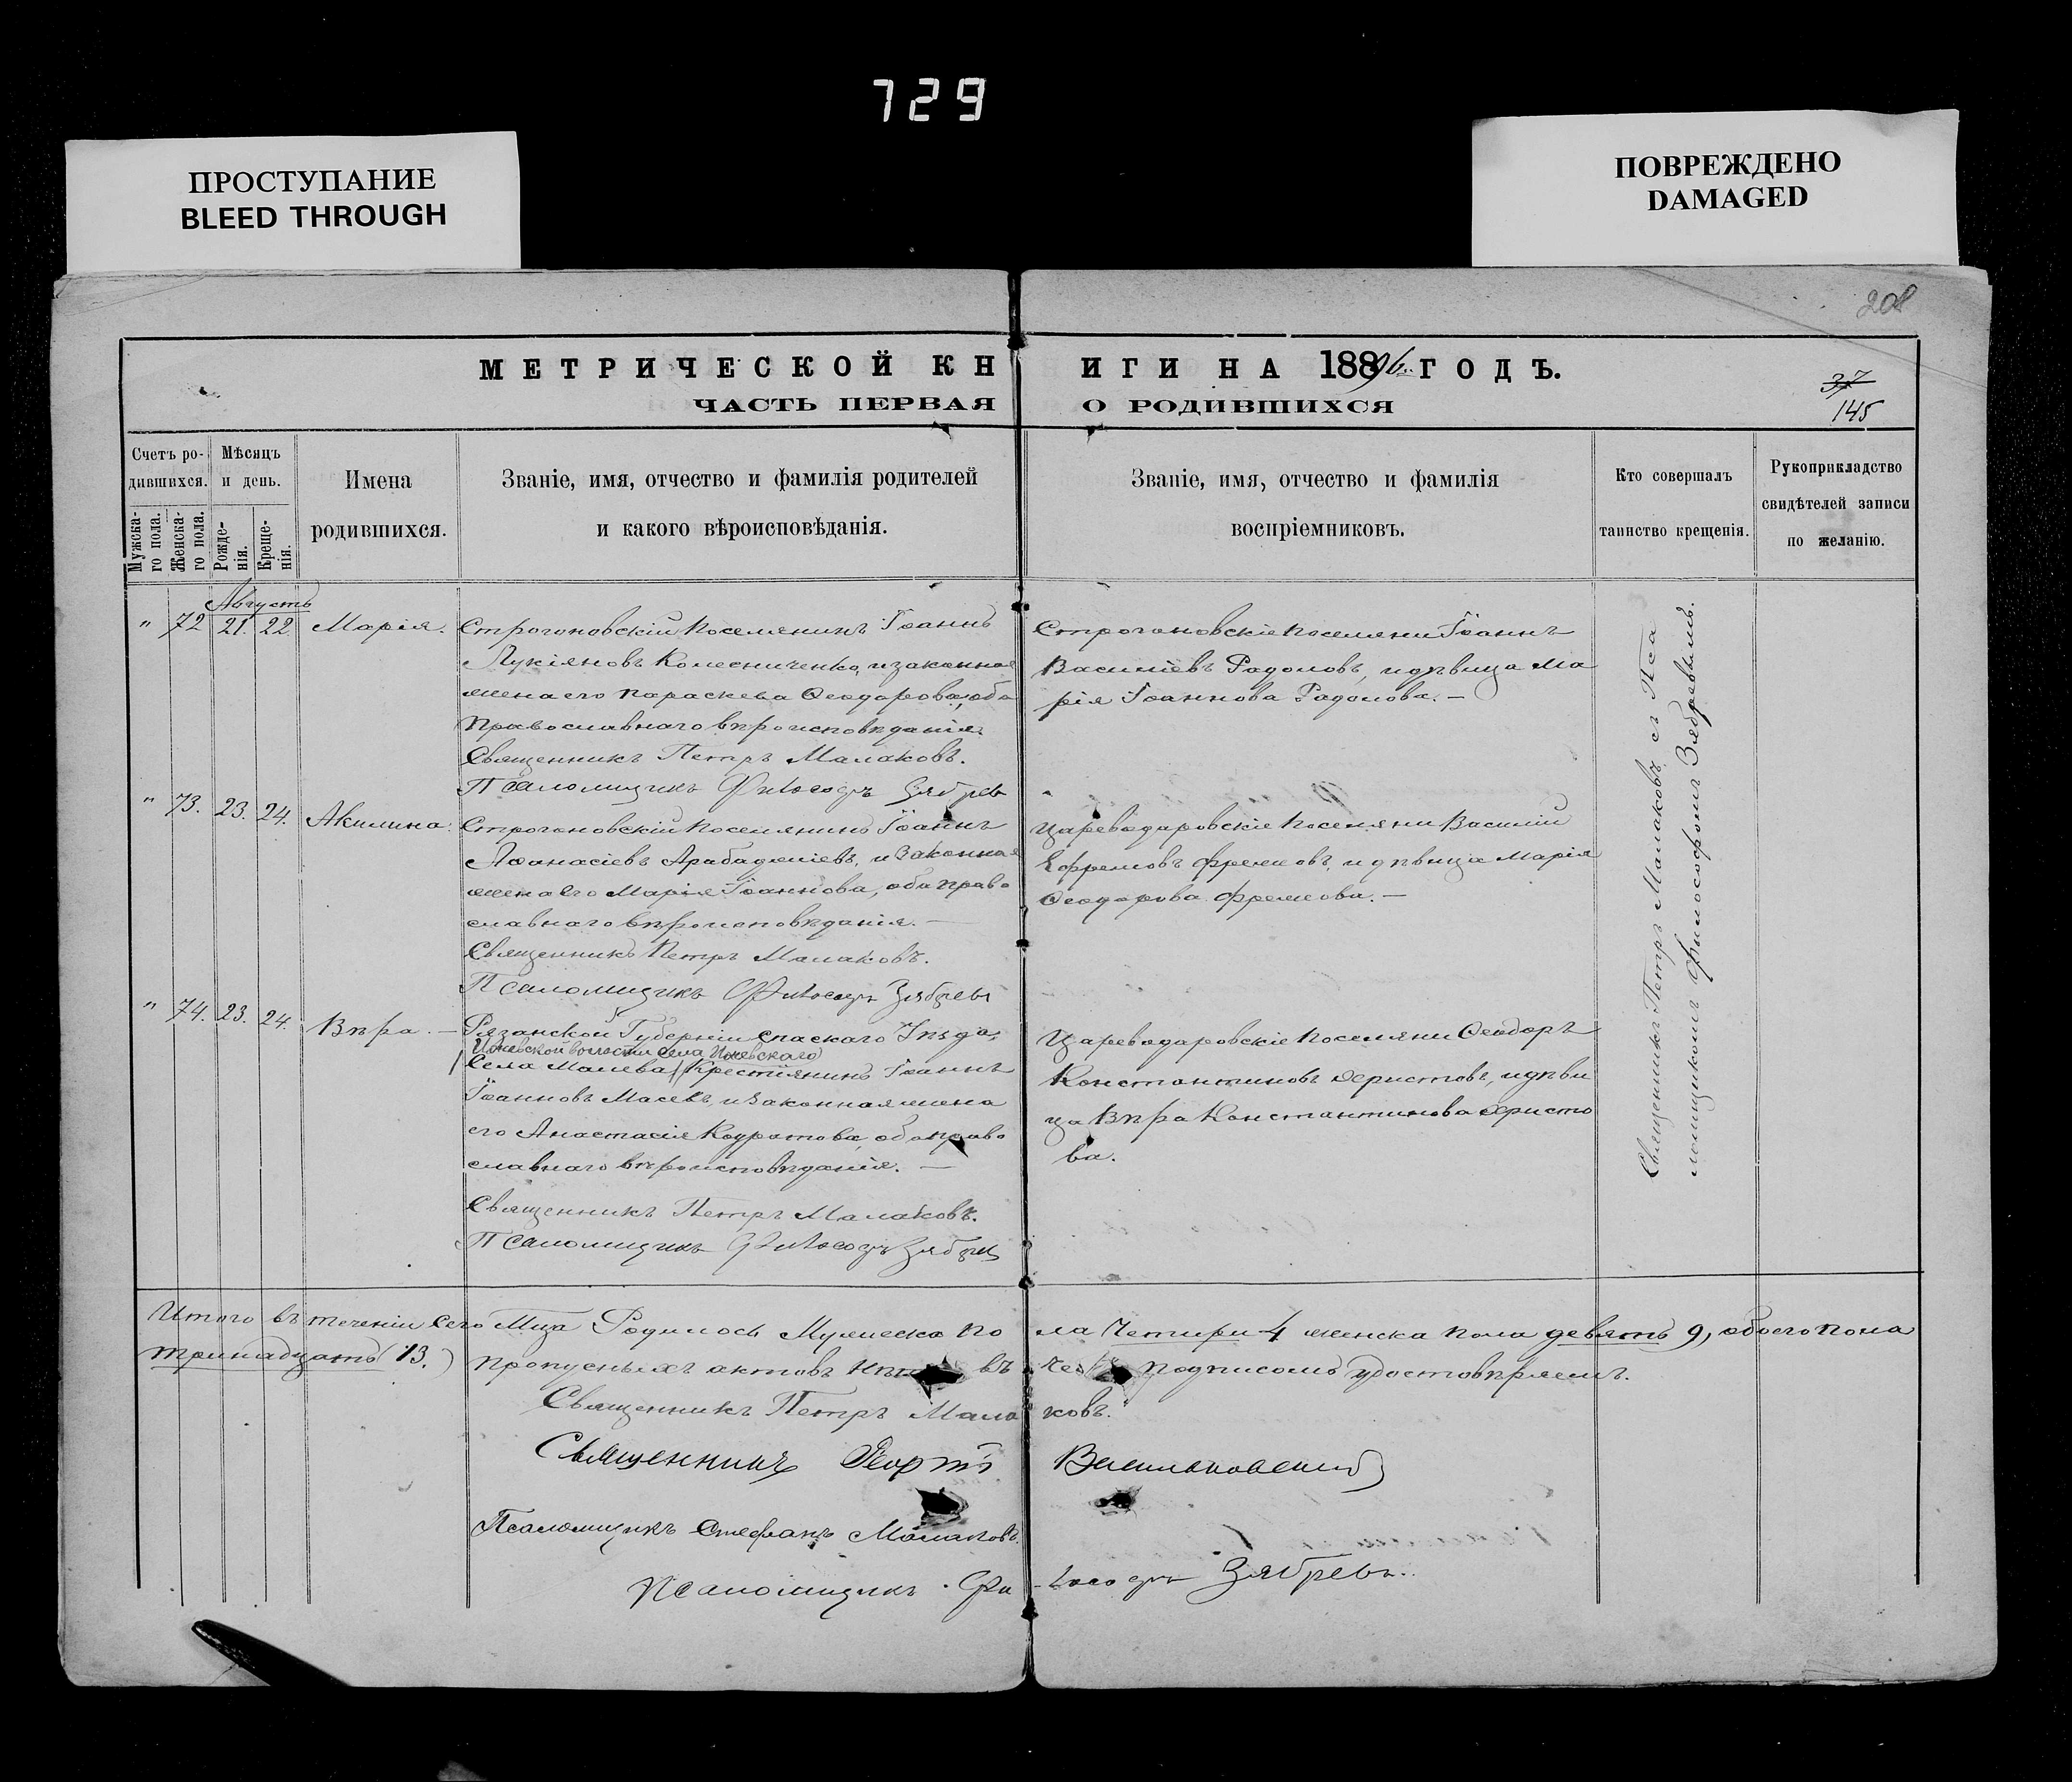 729
ПРОСТУПАНИЕ
BLEED THROUGH
ПОВРЕЖДЕНО
DAMAGED
208
МЕТРИЧЕСКОЙ КНИГИ НА 1896 ГОДЪ.
ЧАСТЬ ПЕРВАЯ О РОДИВШИХСЯ
37
145
Счетъ родившихся.
Мужскаго пола.
Женскаго пола.
Мѣсяцъ и день.
Рожденія.
Крещенія.
Имена
родившихся.
Званіе, имя, отчество и фамилія родителей
и какого вѣроисповѣданія.
Званіе, имя, отчество и фамилія
воспріемниковъ.
Кто совершалъ
таинство крещенія.
Рукоприкладство
свидѣтелей записи
по желанію.
Августъ
" 72 21. 22. Марія.
Строгоновскій поселянинъ Іоаннъ
Лукіяновъ Колесниченко, и законная
жена его Параскева Ѳеодорова, оба
православнаго вѣроисповѣданія.
Священникъ Петръ Малаковъ.
Псаломщикъ Философъ Зябрев
Строгоновскіе поселяни Іоаннъ
Василіевъ Радоловъ, и дѣвица Ма
рія Іоаннова Радолова. —
" 73. 23. 24. Акилина.
Строгоновскій поселянинъ Іоаннъ
Аѳанасіевъ Арабаджіевъ, и законная
жена его Марія Іоаннова, оба право
славнаго вѣроисповѣданія. —
Священникъ Петръ Малаковъ.
Псаломщикъ Философъ Зябревъ
Цареводаровскіе поселяни Василій
Ефремовъ Фремовъ, и дѣвица Марія
Ѳеодорова Фремова. —
" 74. 23. 24. Вѣра. —
Рязанской Губерніи Спаскаго Уѣзда,
Ижевской волости села Ижевскаго
Села Малева Крестіянинъ Іоаннъ
Іоанновъ Масевъ, и законная жена
его Анастасія Кодратова, оба право
славнаго вѣроисповѣданія. —
Священникъ Петръ Малаковъ.
Псаломщикъ Философъ Зябрев
Цареводаровскіе поселяни Ѳеодоръ
Константиновъ Христовъ, и дѣви
ца Вѣра Константинова Христо
ва.
Священникъ Петръ Малаковъ съ Пса
ломщикомъ Философомъ Зябревымъ.
Итого въ теченіи сего Мца Родилось Мужеска по ла Четыри 4 женска пола девять 9, обоего пола
тринадцать (13.) пропусныхъ актовъ въ подписомъ удостовѣряемъ.
Священникъ Петръ Малаковъ.
Священникъ Георгій Васильковскій
Псаломщикъ Стефанъ Малаковъ.
Псаломщикъ Философъ Зябревъ.